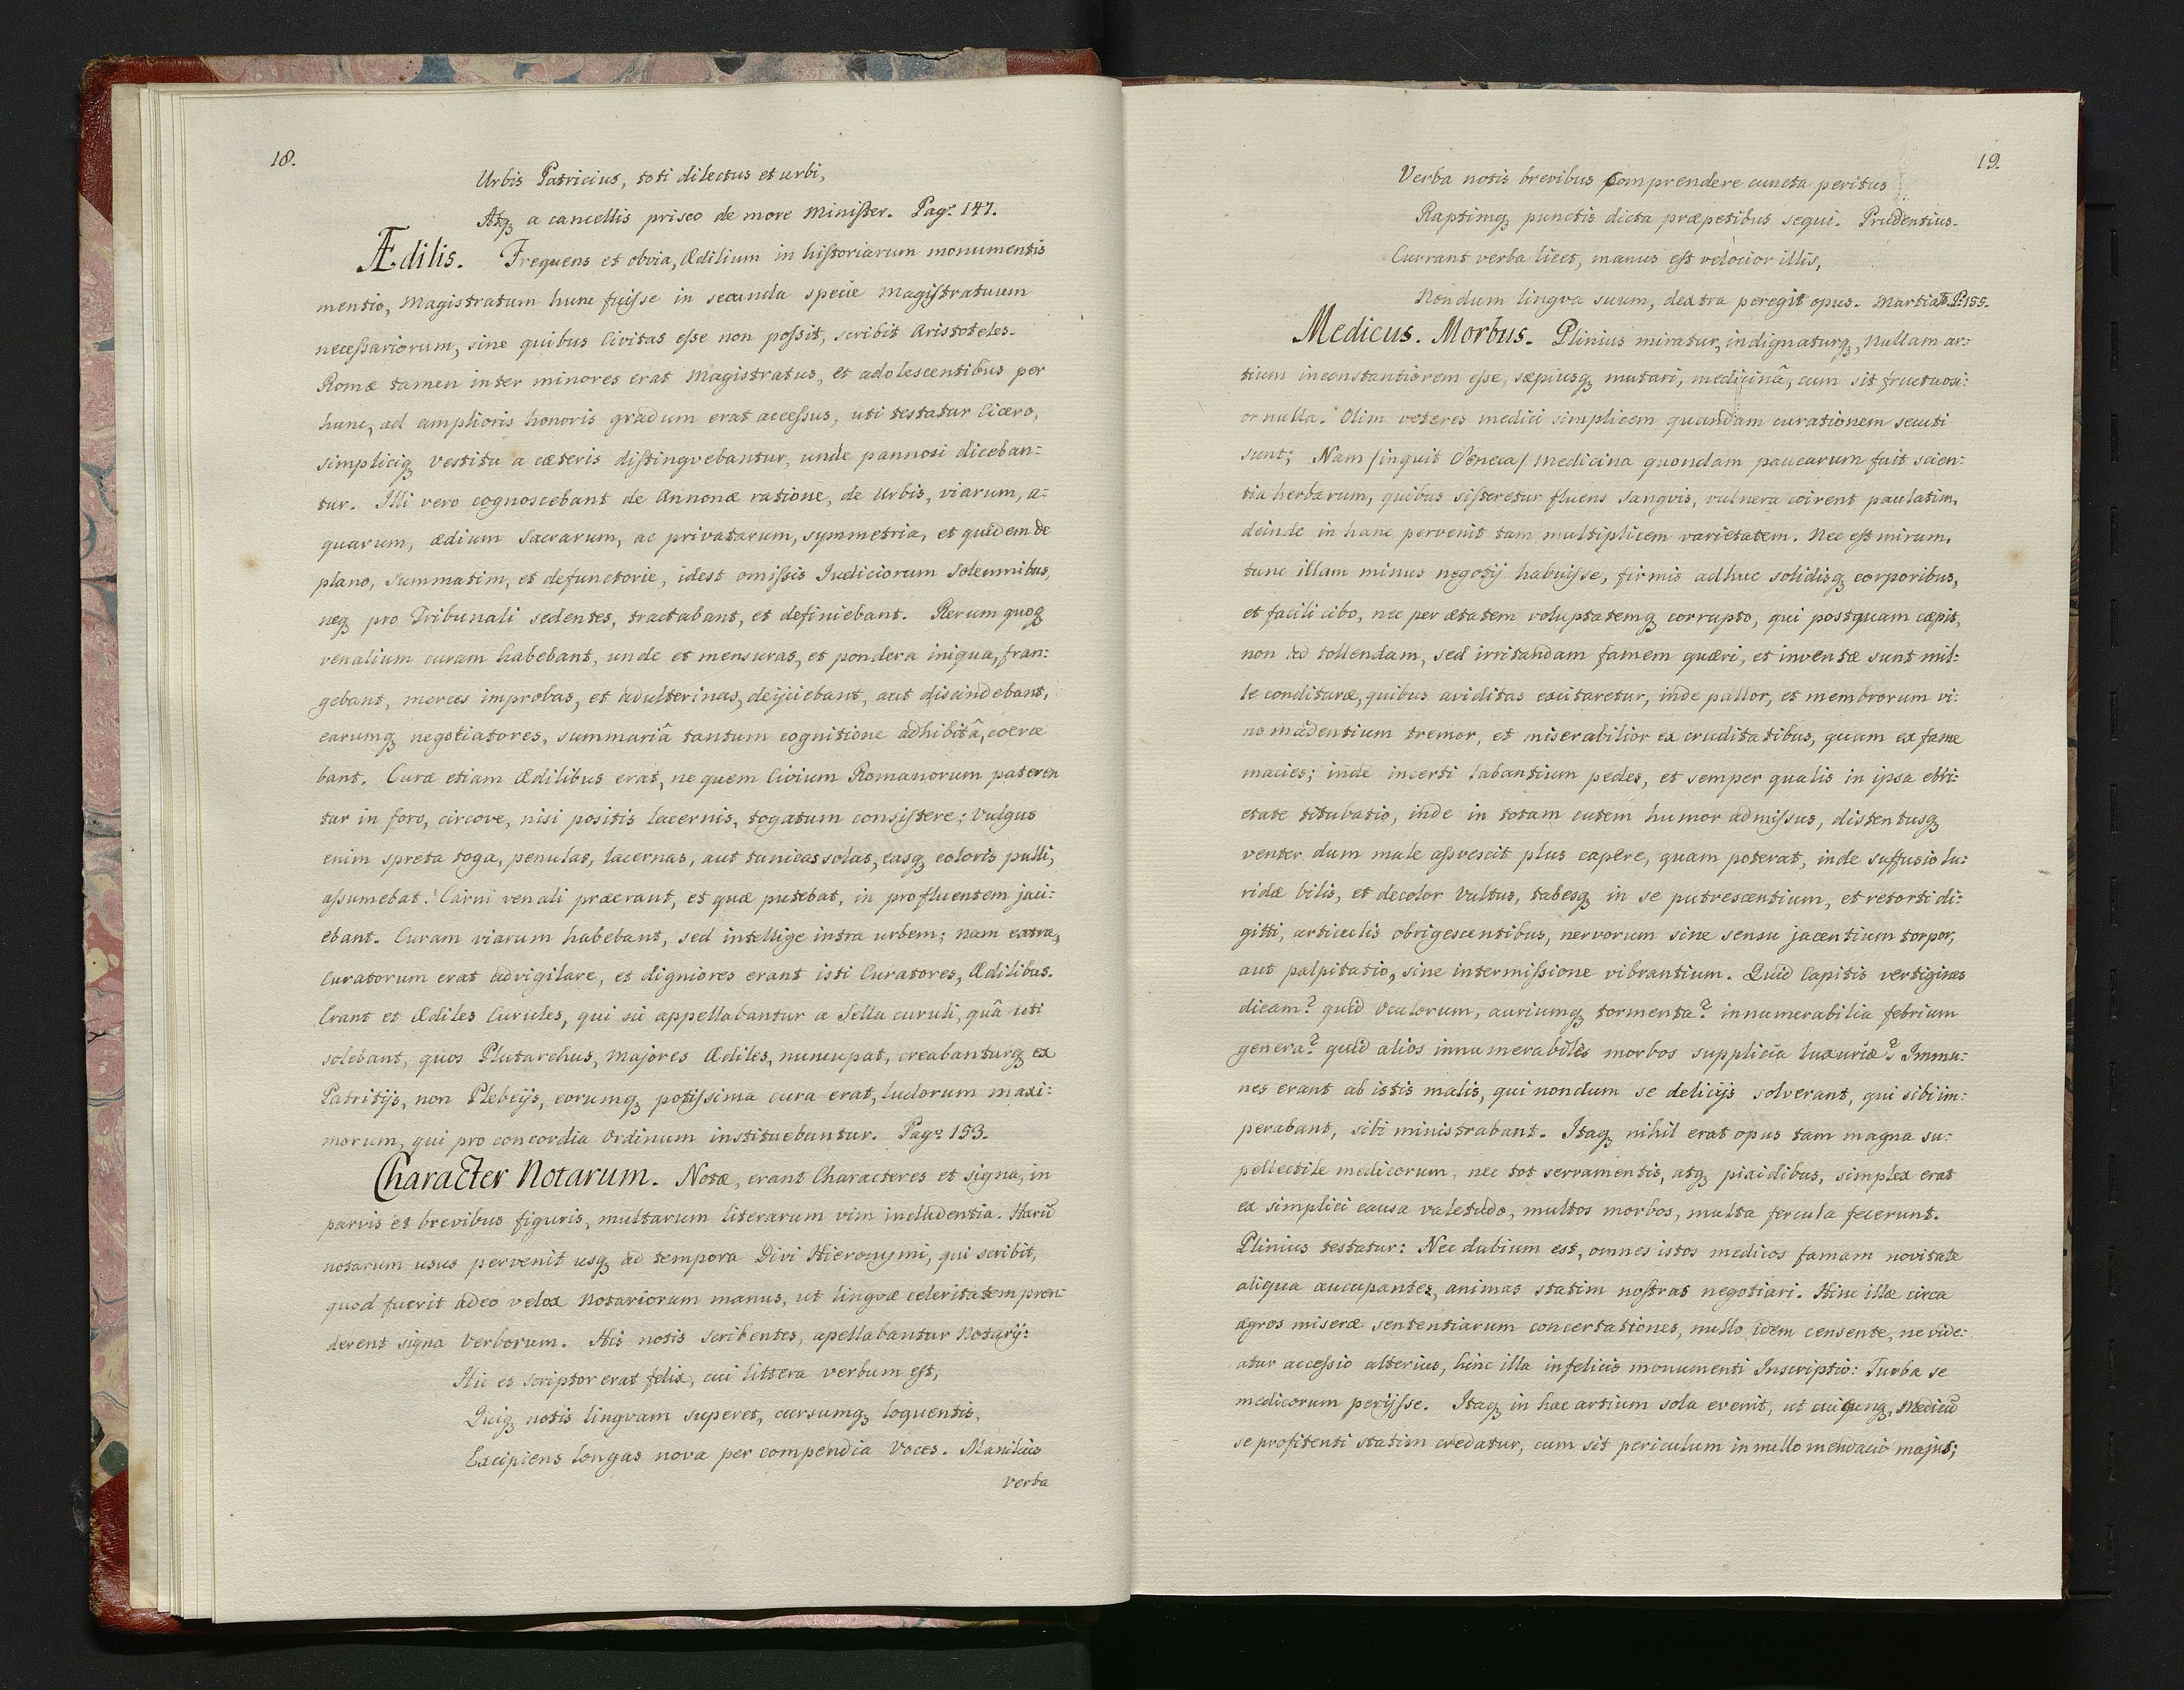 18.
Urbis Patricius, toti dilectus et urbi,
Atq, a cancellis prisco de more Minister. Pag: 147.
Ædilis. Frequens et obvia, Ædilium in historiarum monumentis
mentio, Magistratum hunc fuisse in secunda specie Magistratuum
necessariorum, sine quibus Civitas esse non possit, scribit Aristoteles.
Romæ tamen inter minores erat Magistratus, et adolescentibus per
hunc, ad amplioris honoris gradum erat accessus, uti testatur Cicero,
simpliciq, vestitu a cæteris distingvebantur, unde pannosi diceban:
tur. Illi vero cognoscebant de Annonæ ratione, de Urbis, viarum, a:
quarum, ædium Sacrarum, ac privatarum, symmetria, et quidem de
plano, summatim, et defunctorie, idest omissis Iudiciorum Solemnibus,
neq, pro Tribunali sedentes, tractabant, et definiebant. Rerum quoq,
venalium curam habebant, unde et mensuras, et pondera iniqua, fran:
gebant, merces improbas, et adulterinas, deijciebant, aut discindebant,
earumq, negotiatores, summariâ tantum cognitione adhibitâ, coerce
bant. Curæ etiam Ædilibus erat, ne quem Civium Romanorum pateren
tur in foro, circove, nisi positis lacernis, togatum consistere; Vulgus
enim spreta toga, penulas, lacernas, aut tunicas solas, easq, coloris pulli,
assumebat. Carni venali præerant, et quæ putebat, in profluentem jaci:
ebant. Curam viarum habebant, sed intellige intra urbem; nam extra,
Curatorum erat advigilare, et digniores erant isti Curatores, Ædilibus.
Erant et Ædiles Curules, qui sic appellabantur a Sella curuli, quâ uti
solebant, quos Plutarchus, Majores Ædiles, nuncupat, creabanturq, ex
Patritijs, non Plebeijs, eorumq, potissima cura erat, ludorum maxi:
morum, qui pro concordia Ordinum instituebantur. Pag: 153.
Character Notarum. Notæ, erant Characteres et signa, in
parvis et brevibus figuris, multarum literarum vim includentia. Harū
notarum usus pervenit usq, ad tempora Divi Hieronymi, qui scribit,
quod fuerit adeo velox Notariorum manus, ut lingvæ celeritatem pren:
derent signa Verborum. His notis scribentes, apellabantur Notarij:
Hic et scriptor erat felix, cui littera verbum est,
Quiq, notis lingvam superet, cursumq, loquentis,
Excipiens longas nova per compendia Voces. Manilius
Verba
19.
Verba notis brevibus Comprendere cuncta peritus
Raptimq, punctis dicta præpetibus sequi. Prudentius.
Currant verba licet, manus est velocior illis,
Nondum lingva suum, dextra peregit opus. Martia. P: 155.
Medicus. Morbus. Plinius miratur, indignaturq, Nullam ar:
tium inconstantiorem esse, sæpiusq, mutari, medicinâ, cum sit fructuosi:
or nulla. Olim veteres medici simplicem quandam curationem secuti
sunt; Nam /inquit Seneca/ Medicina quondam paucarum fuit scien:
tia herbarum, quibus sisteretur fluens Sangvis, vulnera coirent paulatim,
deinde in hanc pervenit tam multiplicem varietatem. Nec est mirum,
tunc illam minus negotij habuisse, firmis adhuc solidisq, corporibus,
et facili cibo, nec per ætatem voluptatemq, corrupto, qui postquam cæpit,
non ad tollendam, sed irritandam famem quæri, et inventæ sunt mil:
le condituræ, quibus aviditas excitaretur, inde pallor, et membrorum vi:
no madentium tremor, et miserabilior ex cruditatibus, quam ex fame
macies; inde incerti labantium pedes, et semper qualis in ipsa ebri:
etate titubatio, inde in totam cutem humor admissus, distentusq,
venter dum male assvescit plus capere, quam poterat, inde suffusio lu:
ridæ bilis, et decolor Vultus, tabesq, in se putrescentium, et retorti di:
gitti, articulis obrigescentibus, nervorum sine sensu jacentium torpor,
aut palpitatio, sine intermissione vibrantium. Quid Capitis vertigines
dicam? quid Oculorum, auriumq, tormenta? innumerabilia febrium
genera? quid alios innumerabiles morbos supplicia luxuriæ? Immu:
nes erant ab istis malis, qui nondum se delicijs solverant, qui sibi im:
perabant, sibi ministrabant. Itaq, nihil erat opus tam magna su:
pellectile medicorum, nec tot serramentis, atq, pixidibus, simplex erat
ex simplici causa valetudo, multos morbos, multa fercula fecerunt.
Plinius testatur: Nec dubium est, omnes istos medicos famam novitate
aliqua aucupantes, animas statim nostras negotiari. Hinc illæ circa
ægros miseræ sententiarum concertationes, nullo idem censente, ne vide:
atur accessio alterius, hinc illa infelicis monumenti Inscriptio: Turba se
medicorum perijsse. Itaq, in hac artium sola evenit, ut cuiqunq, Medicū
se profitenti statim credatur, cum sit periculum in nullo mendacio majus;